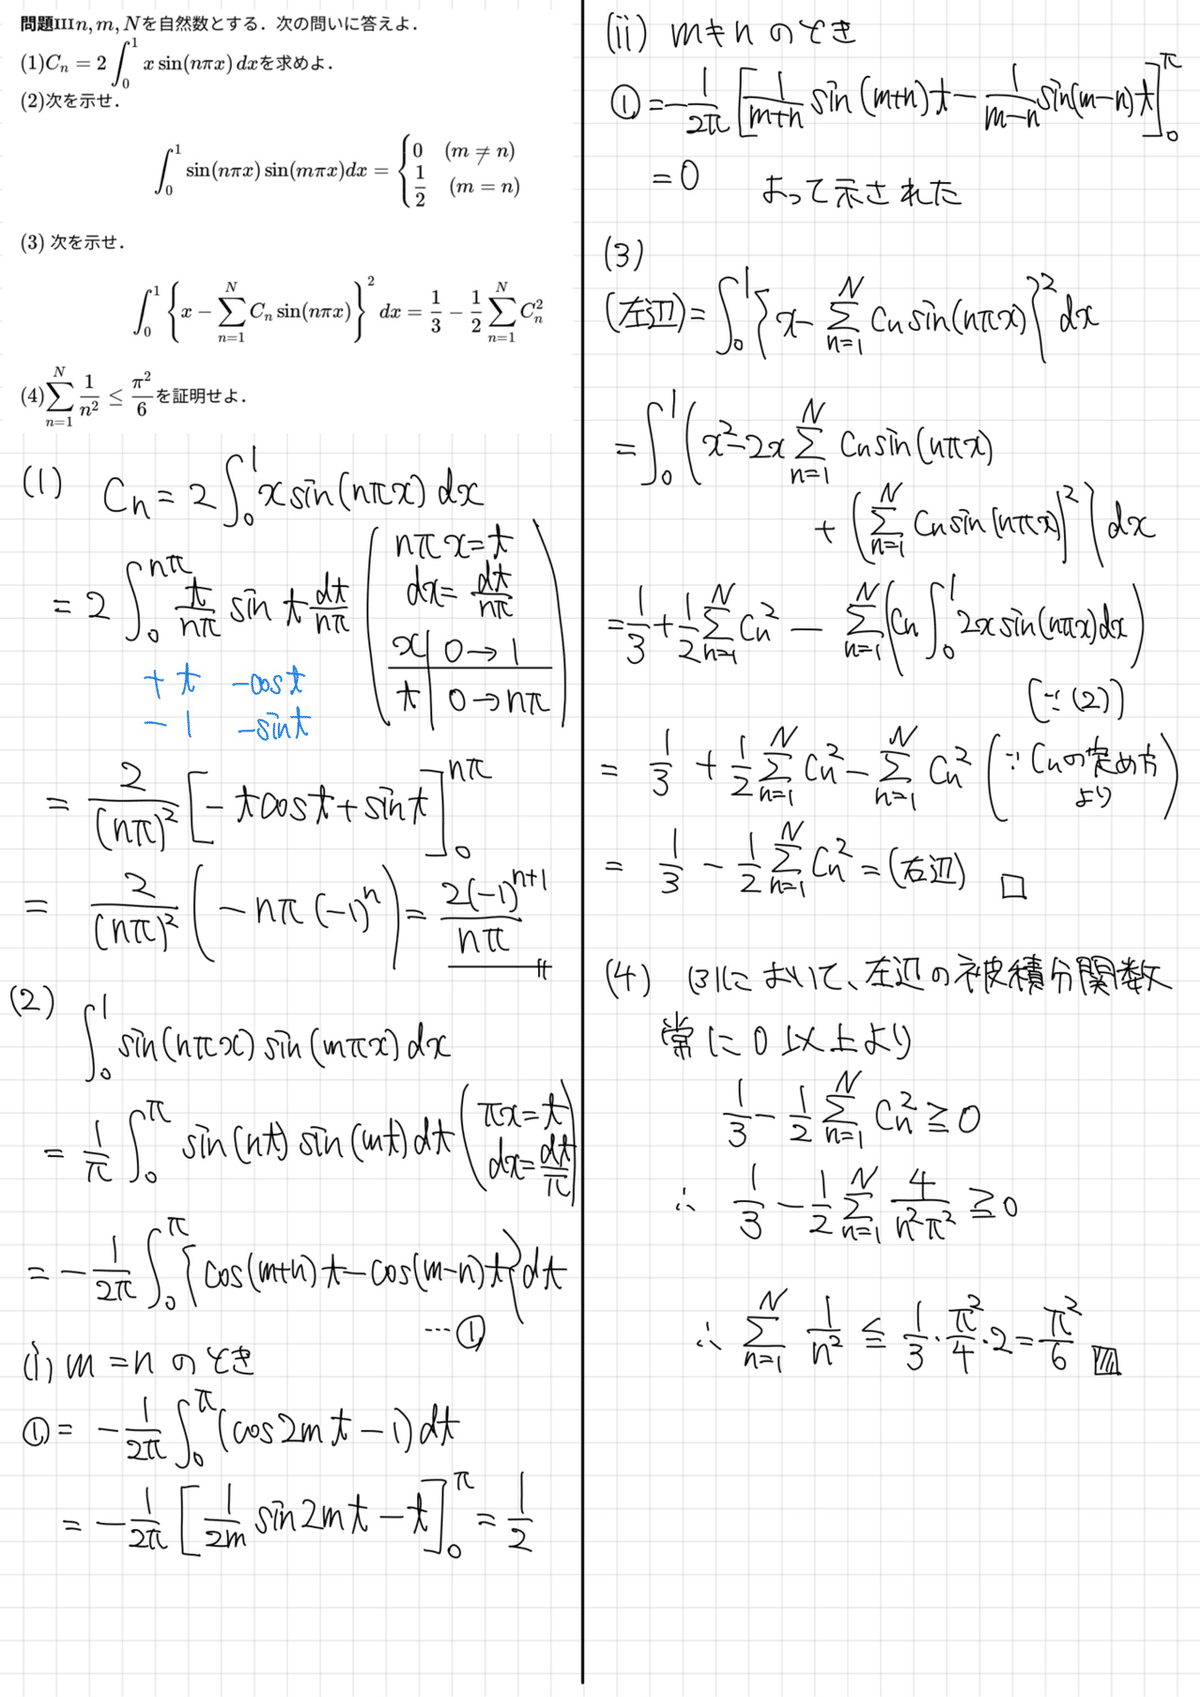 問題III n, m, Nを自然数とする．次の問いに答えよ．
(1)C_n = 2∫_0^1 x sin(nπx) dxを求めよ．
(2)次を示せ．
∫_0^1 sin(nπx) sin(mπx)dx = { 0 (m ≠ n)
1/2 (m = n)
(3) 次を示せ．
∫_0^1 { x − Σ_{n=1}^N C_n sin(nπx) }^2 dx = 1/3 − 1/2 Σ_{n=1}^N C_n^2
(4) Σ_{n=1}^N 1/n^2 ≤ π^2/6 を証明せよ．
(1) C_n = 2∫_0^1 x sin(nπx) dx
= 2∫_0^{nπ} t/nπ sin t dt/nπ
( nπx = t
dx = dt/nπ
x | 0→1
t | 0→nπ )
+ t -cos t
- 1 -sin t
= 2/(nπ)^2 [ -t cos t + sin t ]_0^{nπ}
= 2/(nπ)^2 ( -nπ(-1)^n ) = 2(-1)^{n+1}/nπ
(2) ∫_0^1 sin(nπx) sin(mπx) dx
= 1/π ∫_0^π sin(nt) sin(mt) dt ( πx = t
dx = dt/π )
= -1/2π ∫_0^π { cos(m+n)t - cos(m-n)t } dt
…①
(i) m = n のとき
① = -1/2π ∫_0^π (cos 2mt - 1) dt
= -1/2π [ 1/2m sin 2mt - t ]_0^π = 1/2
(ii) m ≠ n のとき
① = -1/2π [ 1/(m+n) sin(m+n)t - 1/(m-n) sin(m-n)t ]_0^π
= 0 よって示された
(3)
(左辺) = ∫_0^1 { x - Σ_{n=1}^N C_n sin(nπx) }^2 dx
= ∫_0^1 ( x^2 - 2x Σ_{n=1}^N C_n sin(nπx)
+ ( Σ_{n=1}^N C_n sin(nπx) )^2 ) dx
= 1/3 + 1/2 Σ_{n=1}^N C_n^2 - Σ_{n=1}^N ( C_n ∫_0^1 2x sin(nπx) dx )
(∵ (2))
= 1/3 + 1/2 Σ_{n=1}^N C_n^2 - Σ_{n=1}^N C_n^2 ( ∵ C_nの定め方
より )
= 1/3 - 1/2 Σ_{n=1}^N C_n^2 = (右辺) □
(4) (3)において、左辺の被積分関数
常に0以上より
1/3 - 1/2 Σ_{n=1}^N C_n^2 ≧ 0
∴ 1/3 - 1/2 Σ_{n=1}^N 4/n^2π^2 ≧ 0
∴ Σ_{n=1}^N 1/n^2 ≦ 1/3・π^2/4・2 = π^2/6